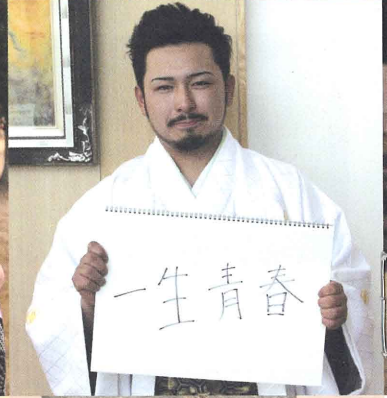 一生青春